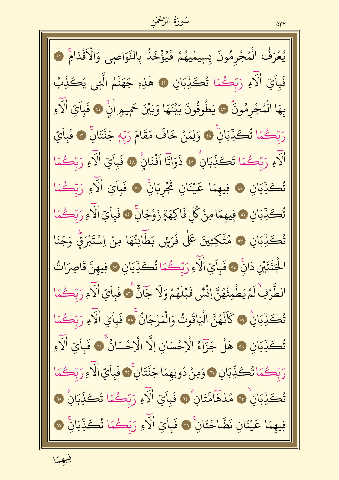 ٥٣٢ سُورَةُ الرَّحْمٰنِ
يُعْرَفُ الْمُجْرِمُونَ بِسِيمٰيهُمْ فَيُؤْخَذُ بِالنَّوَاصِي وَالْاَقْدَامِ
فَبِاَيِّ اٰلَٓاءِ رَبِّكُمَا تُكَذِّبَانِ هٰذِهِ جَهَنَّمُ الَّتِي يُكَذِّبُ
بِهَا الْمُجْرِمُونَ يَطُوفُونَ بَيْنَهَا وَبَيْنَ حَمِيمٍ اٰنٍ فَبِاَيِّ اٰلَٓاءِ
رَبِّكُمَا تُكَذِّبَانِ وَلِمَنْ خَافَ مَقَامَ رَبِّهِ جَنَّتَانِ فَبِاَيِّ
اٰلَٓاءِ رَبِّكُمَا تُكَذِّبَانِ ذَوَاتَٓا اَفْنَانٍ فَبِاَيِّ اٰلَٓاءِ رَبِّكُمَا
تُكَذِّبَانِ فِيهِمَا عَيْنَانِ تَجْرِيَانِ فَبِاَيِّ اٰلَٓاءِ رَبِّكُمَا
تُكَذِّبَانِ فِيهِمَا مِنْ كُلِّ فَاكِهَةٍ زَوْجَانِ فَبِاَيِّ اٰلَٓاءِ رَبِّكُمَا
تُكَذِّبَانِ مُتَّكِـِٔينَ عَلٰى فُرُشٍ بَطَٓائِنُهَا مِنْ اِسْتَبْرَقٍ وَجَنَا
الْجَنَّتَيْنِ دَانٍ فَبِاَيِّ اٰلَٓاءِ رَبِّكُمَا تُكَذِّبَانِ فِيهِنَّ قَاصِرَاتُ
الطَّرْفِ لَمْ يَطْمِثْهُنَّ اِنْسٌ قَبْلَهُمْ وَلَا جَٓانٌّ فَبِاَيِّ اٰلَٓاءِ رَبِّكُمَا
تُكَذِّبَانِ كَاَنَّهُنَّ الْيَاقُوتُ وَالْمَرْجَانُ فَبِاَيِّ اٰلَٓاءِ رَبِّكُمَا
تُكَذِّبَانِ هَلْ جَزَٓاءُ الْاِحْسَانِ اِلَّا الْاِحْسَانُ فَبِاَيِّ اٰلَٓاءِ
رَبِّكُمَا تُكَذِّبَانِ وَمِنْ دُونِهِمَا جَنَّتَانِ فَبِاَيِّ اٰلَٓاءِ رَبِّكُمَا
تُكَذِّبَانِ مُدْهَٓامَّتَانِ فَبِاَيِّ اٰلَٓاءِ رَبِّكُمَا تُكَذِّبَانِ
فِيهِمَا عَيْنَانِ نَضَّاخَتَانِ فَبِاَيِّ اٰلَٓاءِ رَبِّكُمَا تُكَذِّبَانِ
فِيهِمَا